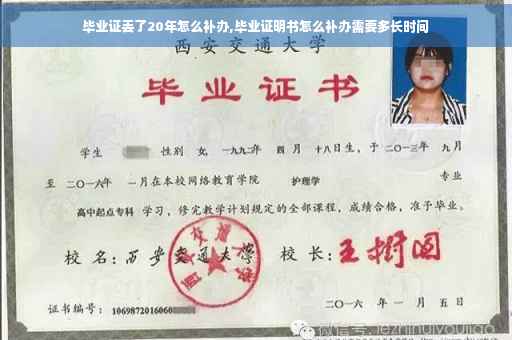 毕业证丢了20年怎么补办,毕业证明书怎么补办需要多长时间
西安交通大学
毕业证书
学生 性别 女, 一九九二年 四月 十八日生, 于 二〇一三年 九月
至 二〇一六年 一月在本校网络教育学院 护理学 专业
高中起点专科 学习, 修完教学计划规定的全部课程, 成绩合格, 准予毕业。
校名: 西安交通大学 校长: 王树国
证书编号: 1069872016060
二〇一六年 一月 五日
微信号: jiezhihuiyoujiao